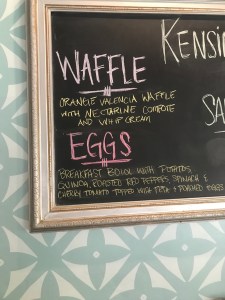 KENSI
WAFFLE
ORANGE VALENCIA WAFFLE
WITH NECTARINE COMPOTE
AND WHIP CREAM
SA
EGGS
BREAKFAST BOWL WITH POTATOS,
QUINOA, ROASTED RED PEPPERS, SPINACH &
CHERRY TOMATO TOPPED WITH FETA & POACHED EGGS